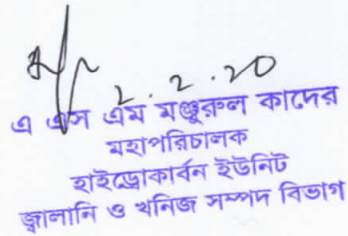 2.2.20
এ এস এম মঞ্জুরুল কাদের
মহাপরিচালক
হাইড্রোকার্বন ইউনিট
জ্বালানি ও খনিজ সম্পদ বিভাগ